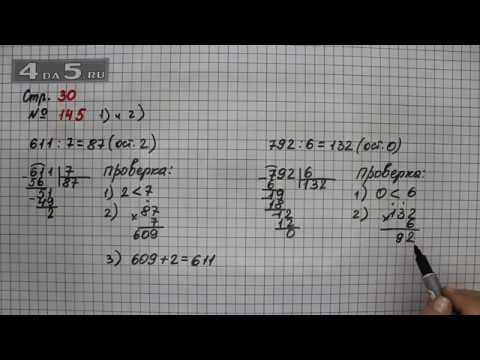 4 DA 5.RU
Стр. 30
№ 145 1) и 2)
611 : 7 = 87 (ост. 2)
611 | 7
56 | 87
51
49
2
проверка:
1) 2 < 7
2) × 87
7
609
3) 609 + 2 = 611
792 : 6 = 132 (ост. 0)
792 | 6
6 | 132
19
18
12
12
0
проверка:
1) 0 < 6
2) × 132
6
92